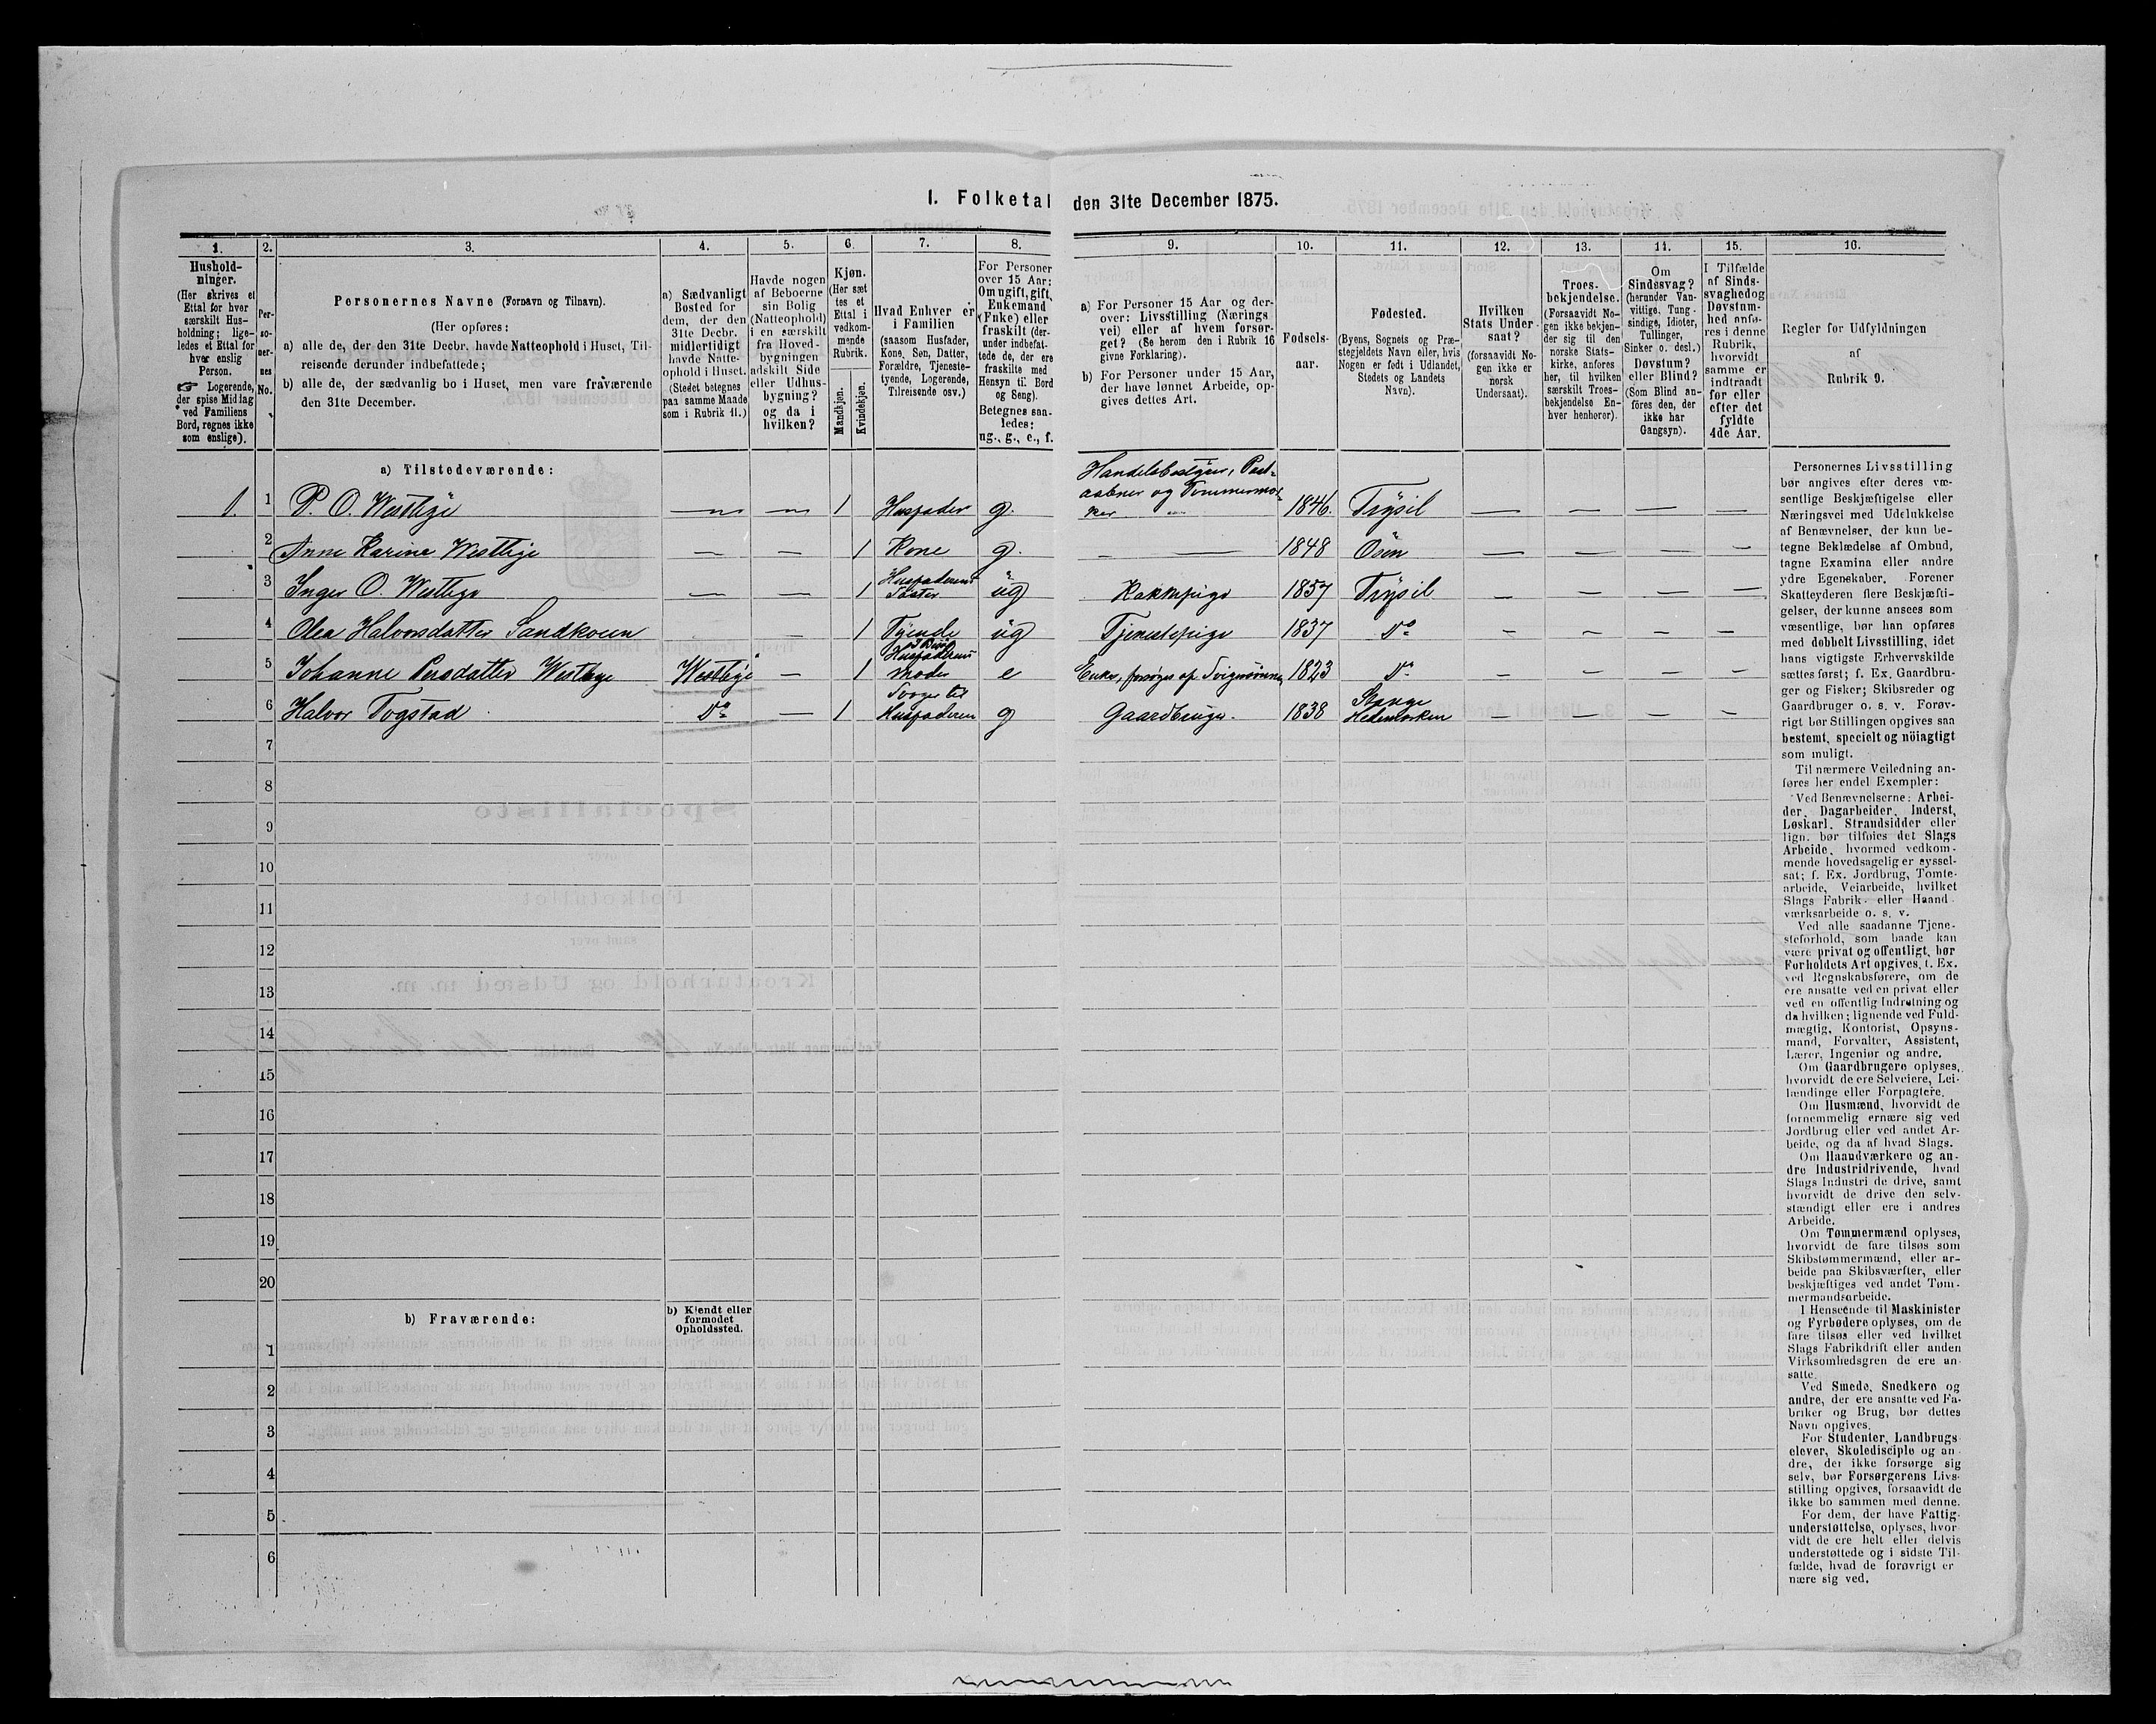 I. Folketal den 31te December 1875.
1.
Hushold-
ninger.
(Her skrives et
Ettal for hver
særskilt Hus-
holdning; lige-
ledes et Ettal for
hver enslig
Person.
☞ Logerende,
der spise Middag
ved Familiens
Bord, regnes ikke
som enslige).
2.
Per-
so-
ner-
nes
No.
3.
Personernes Navne (Fornavn og Tilnavn).
(Her opføres:
a) alle de, der den 31te Decbr. havde Natteophold i Huset, Til-
reisende derunder indbefattede;
b) alle de, der sædvanlig bo i Huset, men vare fraværende
den 31te December.
4.
a) Sædvanligt
Bosted for
dem, der den
31te Decbr.
midlertidigt
havde Natte-
ophold i Huset.
(Stedet betegnes
paa samme Maade
som i Rubrik 11.)
5.
Havde nogen
af Beboerne
sin Bolig
(Natteophold)
i en særskilt
fra Hoved-
bygningen
adskilt Side
eller Udhus-
bygning?
og da i
hvilken?
6.
Kjøn.
(Her sæt
tes et
Ettal i
vedkom-
mende
Rubrik.
Mandkjøn.
Kvindekjøn.
7.
Hvad Enhver er
i Familien
(saasom Husfader,
Kone, Søn, Datter,
Forældre, Tjeneste-
tyende, Logerende,
Tilreisende osv.)
8.
For Personer
over 15 Aar;
Om ugift, gift,
Enkemand
(Enke) eller
fraskilt (der-
under indbefat-
tede de, der ere
fraskilte med
Hensyn til Bord
og Seng).
Betegnes saa-
ledes:
ug., g., e., f.
9.
a) For Personer 15 Aar og der-
over: Livsstilling (Nærings
vei) eller af hvem forsør-
get? (Se herom den i Rubrik 16
givne Forklaring).
b) For Personer under 15 Aar,
der have lønnet Arbeide, op-
gives dettes Art.
10.
Fødsels-
aar.
11.
Fødested.
(Byens, Sognets og Præ-
stegjeldets Navn eller, hvis
Nogen er født i Udlandet,
Stedets og Landets
Navn).
12.
Hvilken
Stats Under-
saat?
(forsaavidt No-
gen ikke er
norsk
Undersaat).
13.
Troes-
bekjendelse.
(Forsaavidt No-
gen ikke bekjen-
der sig til den
norske Stats-
kirke, anføres
her, til hvilken
særskilt Troes-
bekjendelse En-
hver henhører).
14.
Om
Sindssvag?
(herunder Van-
vittige, Tung-
sindige, Idioter,
Tullinger,
Sinker o. desl.)
Døvstum?
eller Blind?
(Som Blind an-
føres den, der
ikke har
Gangsyn).
15.
I Tilfælde
af Sinds-
svaghed og
Døvstum-
hed anfø-
res i denne
Rubrik,
hvorvidt
samme er
indtraadt
før eller
efter det
fyldte
4de Aar.
16.
Regler for Udfyldningen
af
Rubrik 9.
a) Tilstedeværende:
Handelsbestyrer, Post-
aabner og Tømmermær-
ker
1. 1 P. O. Westbye — — 1 Husfader g. 1846. Trysil — — — —
2 Anne Karine Westbye — — 1 Kone g. — — 1848 Osen — — — —
3 Inger O. Westbye — — 1 Husfaderens Søster ug Kakkpige 1857 Trysil — — — —
4 Olea Halvorsdatter Sandkveen — 1 Tyende ug Tjenestepige 1837 Do — — — —
5 Johanne Persdatter Westbye Westbye — 1 Husfaderens Moder e Enke, forsørges af Svigersønnen 1823 Do — — — —
6 Halvor Togstad Do — 1 Svoger til Husfaderen g Gaardbruger. 1838 Stange Hedemarken — — — —
7
8
9
10
11
12
13
14
15
16
17
18
19
20
b) Fraværende:
b) Kjendt eller
formodet
Opholdssted.
1
2
3
4
5
6
Personernes Livsstilling
bør angives efter deres væ-
sentlige Beskjæftigelse eller
Næringsvei med Udelukkelse
af Benævnelser, der kun be-
tegne Beklædelse af Ombud,
tagne Examina eller andre
ydre Egenskaber. Forener
Skatteyderen flere Beskjæfti-
gelser, der kunne ansees som
væsentlige, bør han opføres
med dobbelt Livsstilling, idet
hans vigtigste Erhvervskilde
sættes først; f. Ex. Gaardbru-
ger og Fisker; Skibsreder og
Gaardbruger o. s. v. Forøv-
rigt bør Stillingen opgives saa
bestemt, specielt og nöiagtigt
som muligt.
Til nærmere Veiledning an-
føres her endel Exempler:
Ved Benævnelserne: Arbei-
der, Dagarbeider, Inderst,
Løskarl, Strandsidder eller
lign. bør tilføies det Slags
Arbeide, hvormed vedkom-
mende hovedsagelig er syssel-
sat; f. Ex. Jordbrug, Tomte-
arbeide, Veiarbeide, hvilket
Slags Fabrik- eller Haand-
værksarbeide o. s. v.
Ved alle saadanne Tjene-
steforhold, som baade kan
være privat og offentligt, bør
Forholdets Art opgives, f. Ex.
ved Regnskabsførere, om de
ere ansatte ved en privat eller
ved en offentlig Indretning og
da hvilken; lignende ved Fuld-
mægtig, Kontorist, Opsyns-
mand, Forvalter, Assistent,
Lærer, Ingeniør og andre.
Om Gaardbrugere oplyses,
hvorvidt de ere Selveiere, Lei-
lændinge eller Forpagtere.
Om Husmænd, hvorvidt de
fornemmelig ernære sig ved
Jordbrug eller ved andet Ar-
beide, og da af hvad Slags.
Om Haandværkere og an-
dre Industridrivende, hvad
Slags Industri de drive, samt
hvorvidt de drive den selv-
stændigt eller ere i andres
Arbeide.
Om Tømmermænd oplyses,
hvorvidt de fare tilsøs som
Skibstømmermænd, eller ar-
beide paa Skibsværfter, eller
beskjæftiges ved andet Tøm-
mermandsarbeide.
I Henseende til Maskinister
og Fyrbødere oplyses, om de
fare tilsøs eller ved hvilket
Slags Fabrikdrift eller anden
Virksomhedsgren de ere an-
satte.
Ved Smede, Snedkere og
andre, der ere ansatte ved Fa-
briker og Brug, bør dettes
Navn opgives.
For Studenter, Landbrugs-
elever, Skoledisciple og an-
dre, der ikke forsørge sig
selv, bør Forsørgerens Livs-
stilling opgives, forsaavidt de
ikke bo sammen med denne.
For dem, der have Fattig-
understøttelse, oplyses, hvor-
vidt de ere helt eller delvis
understøttede og i sidste Til-
fælde, hvad de forøvrigt er-
nære sig ved.